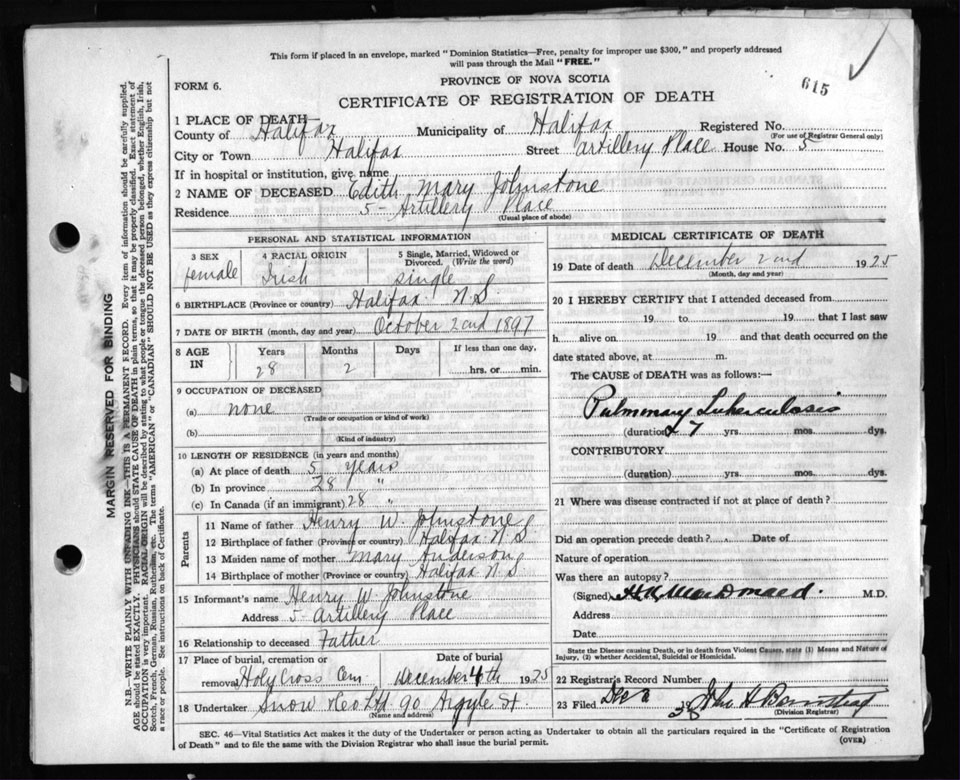 This form if placed in an envelope, marked "Dominion Statistics—Free, penalty for improper use $300," and properly addressed
will pass through the Mail "FREE."
615
FORM 6.
PROVINCE OF NOVA SCOTIA
CERTIFICATE OF REGISTRATION OF DEATH
1 PLACE OF DEATH
County of Halifax Municipality of Halifax Registered No.
(For use of Registrar General only)
City or Town Halifax Street Artillery Place House No. 5
If in hospital or institution, give name
2 NAME OF DECEASED Edith Mary Johnstone
Residence 5- Artillery Place
(Usual place of abode)
PERSONAL AND STATISTICAL INFORMATION
3 SEX female
4 RACIAL ORIGIN Irish
5 Single, Married, Widowed or Divorced. (Write the word) single
6 BIRTHPLACE (Province or country) Halifax N.S.
7 DATE OF BIRTH (month, day and year) October 2nd 1897
8 AGE IN Years 28 Months 2 Days If less than one day, hrs. or min.
9 OCCUPATION OF DECEASED
(a) none
(Trade or occupation or kind of work)
(b)
(Kind of industry)
10 LENGTH OF RESIDENCE (in years and months)
(a) At place of death 5 years
(b) In province 28 "
(c) In Canada (if an immigrant) 28 "
Parents
11 Name of father Henry W. Johnstone
12 Birthplace of father (Province or country) Halifax N.S.
13 Maiden name of mother Mary Anderson
14 Birthplace of mother (Province or country) Halifax N.S.
15 Informant's name Henry W Johnstone
Address 5- Artillery Place
16 Relationship to deceased Father
17 Place of burial, cremation or removal Holy Cross Cem Date of burial December 4th 1925
18 Undertaker Snow & Co Ltd. 90 Argyle St.
(Name and address)
MEDICAL CERTIFICATE OF DEATH
19 Date of death December 2nd 1925
(Month, day and year)
20 I HEREBY CERTIFY that I attended deceased from
19 to 19 that I last saw
h alive on 19 and that death occurred on the
date stated above, at m.
The CAUSE of DEATH was as follows:—
Pulmonary Tuberculosis
(duration) 7 yrs. mos. dys.
CONTRIBUTORY.
(duration) yrs. mos. dys.
21 Where was disease contracted if not at place of death?
Did an operation precede death? Date of
Nature of operation
Was there an autopsy?
(Signed) MacDonald. M.D.
Address
Date
State the Disease causing Death, or in death from Violent Causes, state (1) Means and Nature of
Injury, (2) whether Accidental, Suicidal or Homicidal.
22 Registrar's Record Number
23 Filed Dec
(Division Registrar)
SEC. 46—Vital Statistics Act makes it the duty of the Undertaker or person acting as Undertaker to obtain all the particulars required in the "Certificate of Registration
of Death" and to file the same with the Division Registrar who shall issue the burial permit.
(OVER)
MARGIN RESERVED FOR BINDING
N.B.—WRITE PLAINLY WITH UNFADING INK—THIS IS A PERMANENT RECORD. Every item of information should be carefully supplied.
AGE should be stated EXACTLY. PHYSICIANS should STATE CAUSE OF DEATH in plain terms, so that it may be properly classified. Exact statement of
OCCUPATION is very important. RACIAL ORIGIN will be described by stating to what people or tongue the deceased person belonged, whether English, Irish,
Scotch, French, German, Russian, Ruthenian, etc. The terms "AMERICAN" or "CANADIAN" SHOULD NOT BE USED as they express citizenship but not
a race or people. See instructions on back of Certificate.